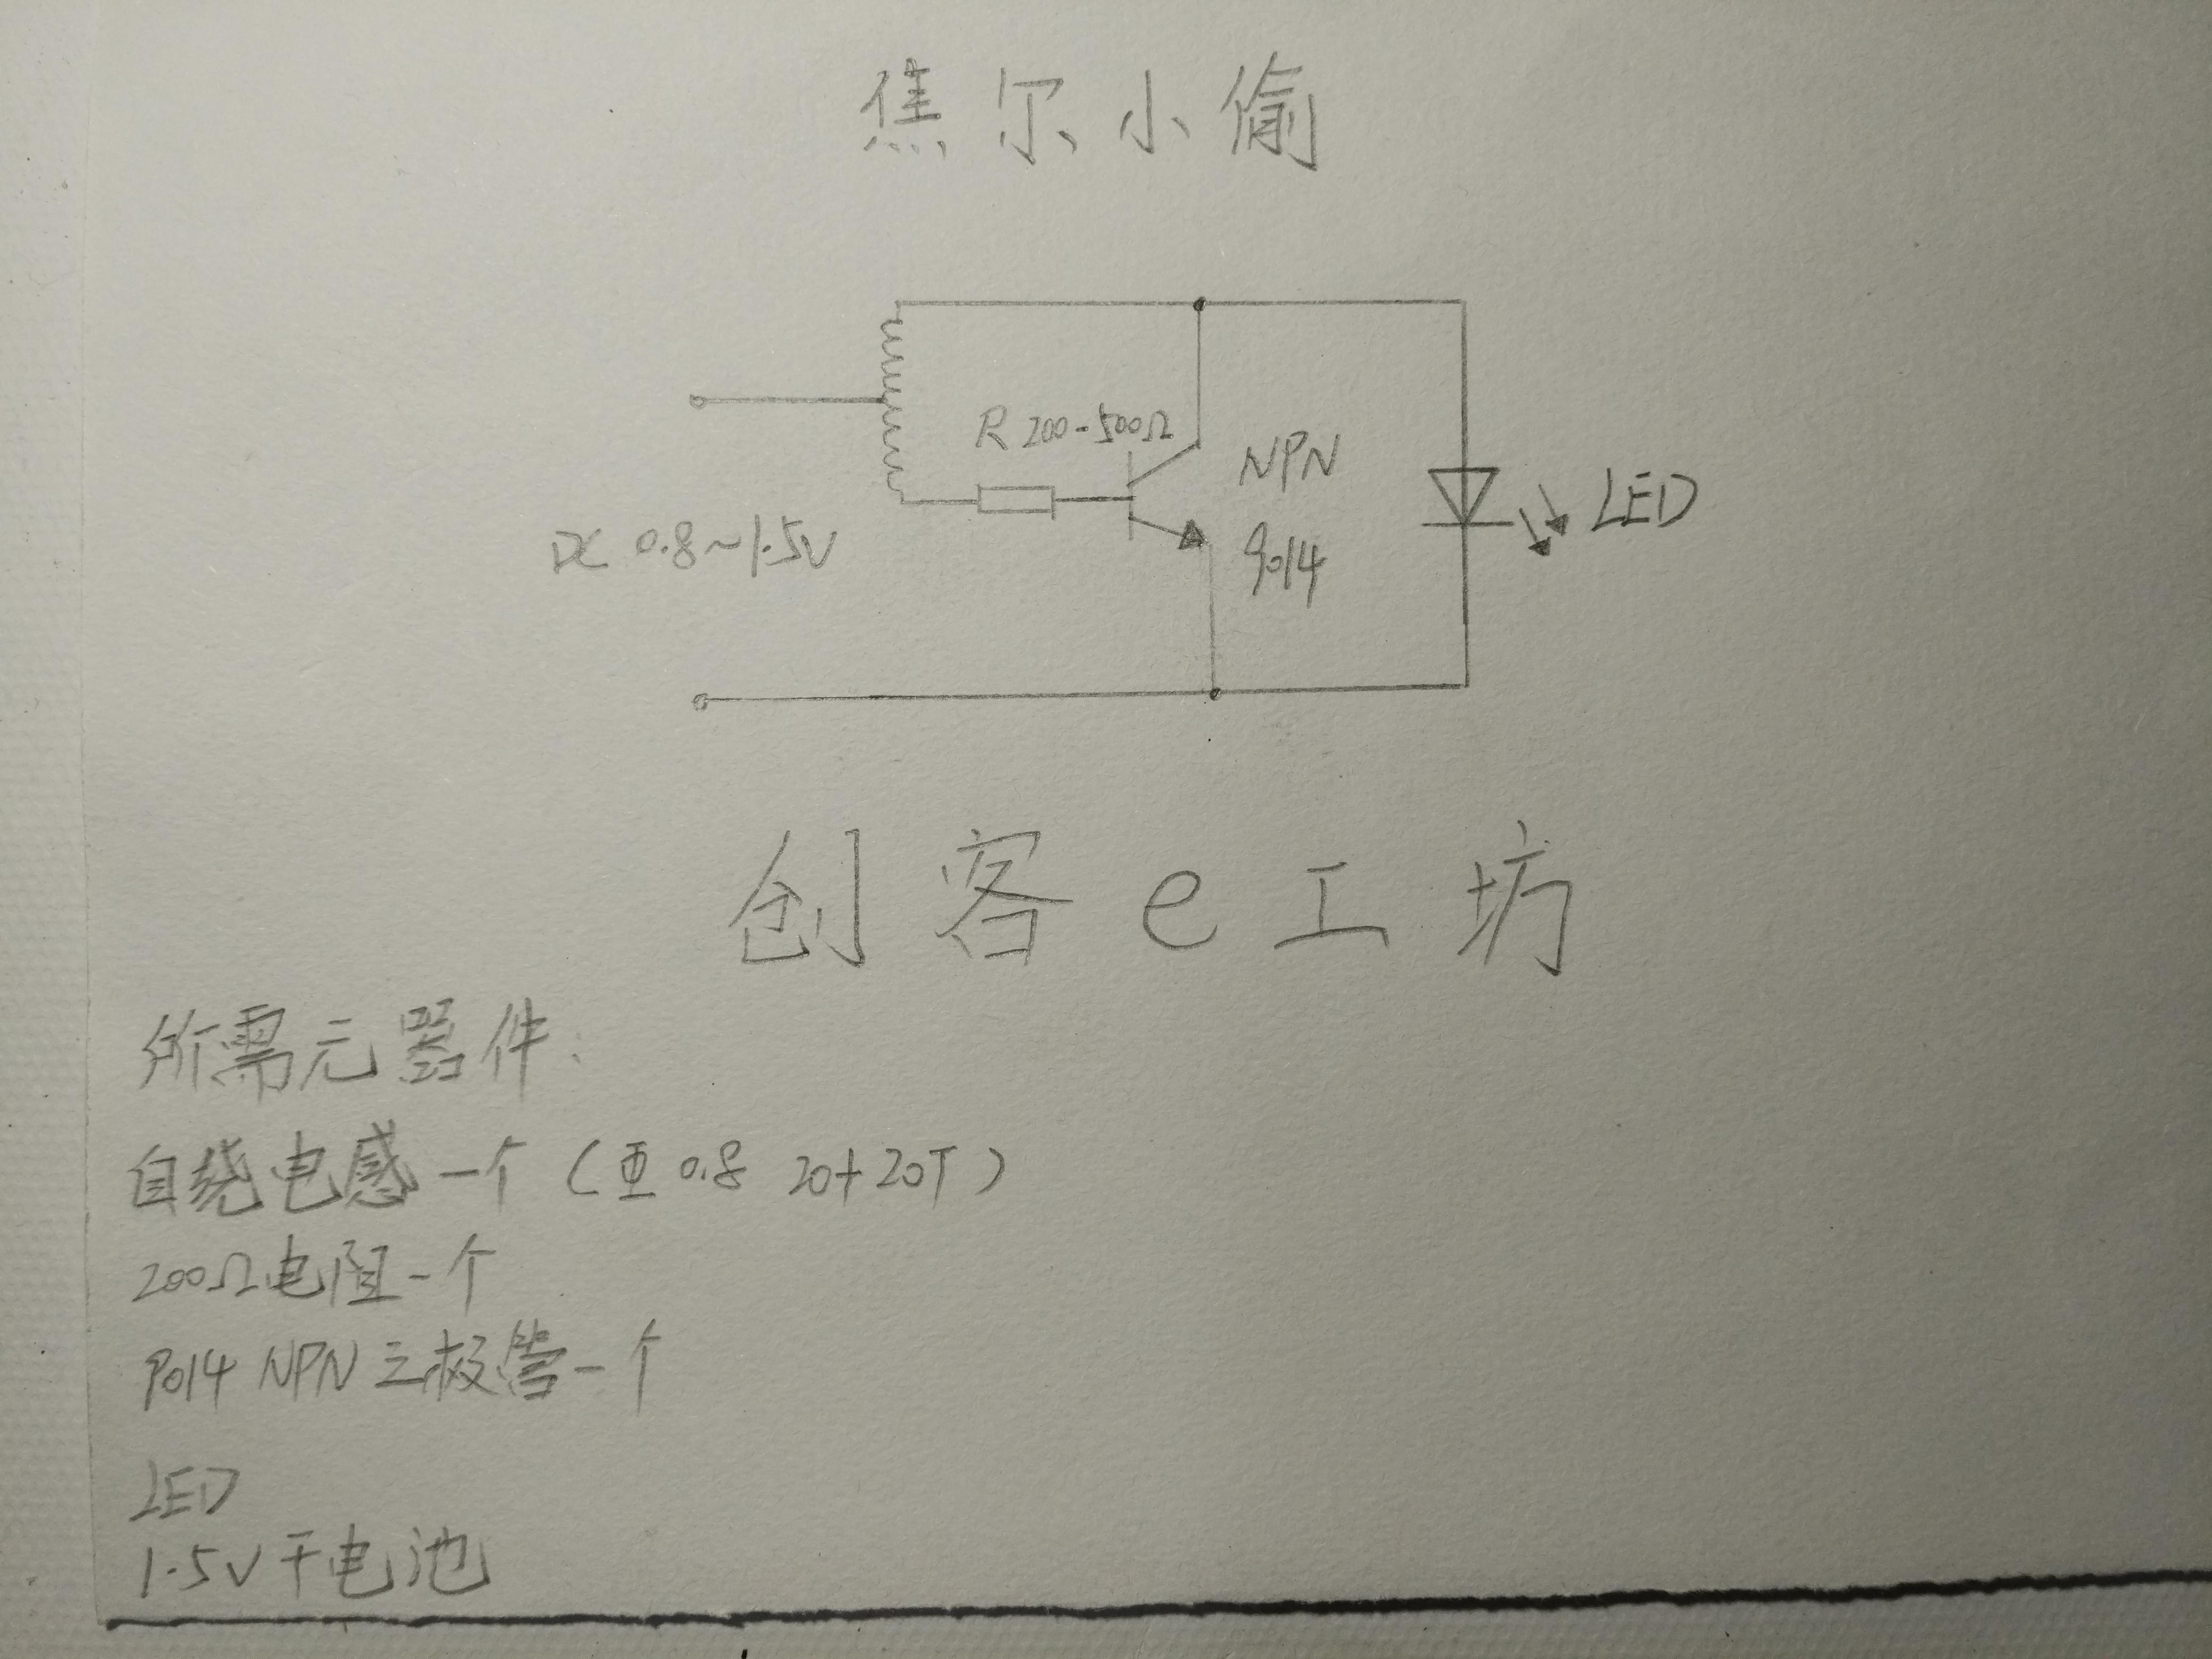 焦尔小偷
R 200-500Ω
NPN
9014
LED
DC 0.8~1.5V
创客e工坊
所需元器件:
自绕电感一个(Φ0.8 20+20T)
200Ω电阻一个
9014 NPN 三极管一个
LED
1.5V干电池